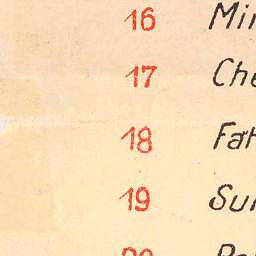 16 Mi
17 Che
18 Fat
19 Su